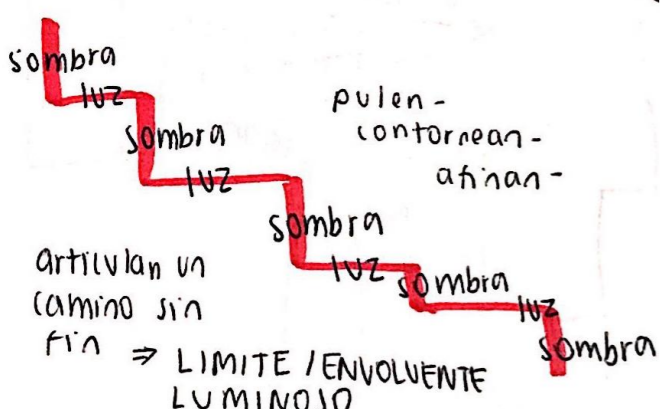 sombra
luz
sombra
luz
sombra
luz
sombra
luz
sombra
pulen-
contornean-
afinan-
articulan un
camino sin
fin ⇒ LIMITE / ENVOLVENTE
LUMINOSO